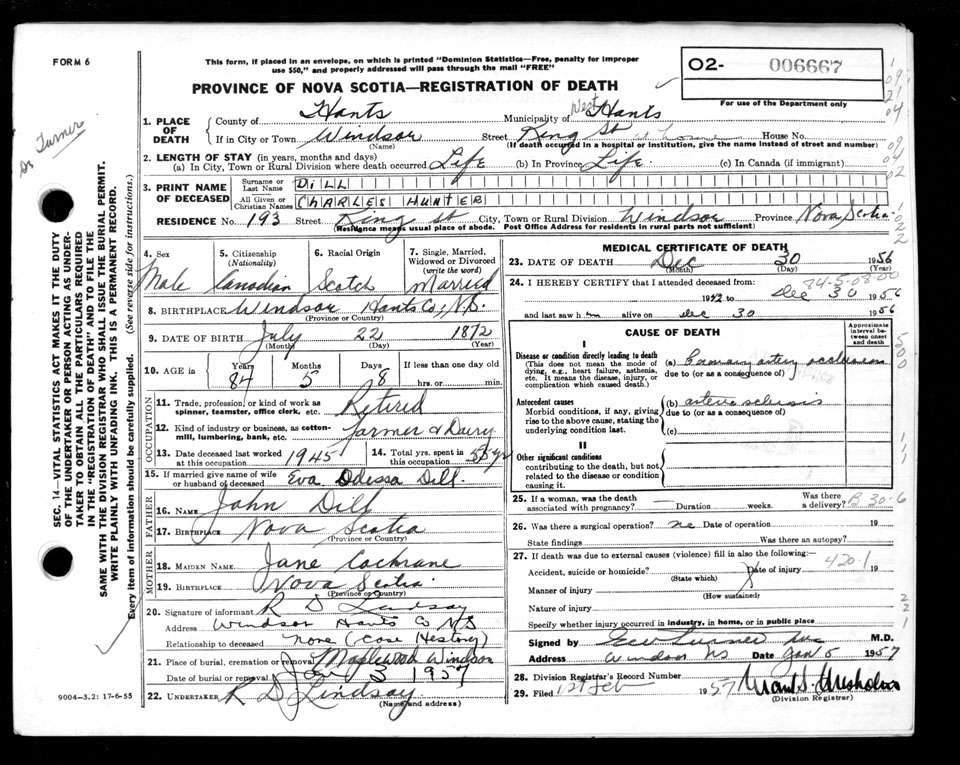 FORM 6
This form, if placed in an envelope, on which is printed "Dominion Statistics—Free, penalty for improper
use $50," and properly addressed will pass through the mail "FREE"
PROVINCE OF NOVA SCOTIA—REGISTRATION OF DEATH
O2- 006667
For use of the Department only
Dr Turner
1. PLACE OF DEATH
County of Hants Municipality of West Hants
If in City or Town Windsor (Name) Street King St at home House No.
(If death occurred in a hospital or institution, give the name instead of street and number)
2. LENGTH OF STAY (in years, months and days)
(a) In City, Town or Rural Division where death occurred Life (b) In Province Life. (c) In Canada (if immigrant)
3. PRINT NAME OF DECEASED
Surname or Last Name DILL
All Given or Christian Names CHARLES HUNTER
RESIDENCE No. 193 Street King St City, Town or Rural Division Windsor Province Nova Scotia
(Residence means usual place of abode. Post Office Address for residents in rural parts not sufficient)
SEC. 14—VITAL STATISTICS ACT MAKES IT THE DUTY
OF THE UNDERTAKER OR PERSON ACTING AS UNDER-
TAKER TO OBTAIN ALL THE PARTICULARS REQUIRED
IN THE "REGISTRATION OF DEATH" AND TO FILE THE
SAME WITH THE DIVISION REGISTRAR WHO SHALL ISSUE THE BURIAL PERMIT.
WRITE PLAINLY WITH UNFADING INK. THIS IS A PERMANENT RECORD.
Every item of information should be carefully supplied. (See reverse side for instructions.)
4. Sex Male
5. Citizenship (Nationality) Canadian
6. Racial Origin Scotch
7. Single, Married, Widowed or Divorced (write the word) Married
8. BIRTHPLACE Windsor Hants Co, N.S.
(Province or Country)
9. DATE OF BIRTH July 22 1872
(Month) (Day) (Year)
10. AGE in Years 84 Months 5 Days 8 If less than one day old hrs. or min.
OCCUPATION
11. Trade, profession, or kind of work as
spinner, teamster, office clerk, etc. Retired
12. Kind of industry or business, as cotton-
mill, lumbering, bank, etc. Farmer & Dairy
13. Date deceased last worked at this occupation 1945
14. Total yrs. spent in this occupation 55 yrs
15. If married give name of wife
or husband of deceased Eva Odessa Dill.
FATHER
16. NAME John Dill
17. BIRTHPLACE Nova Scotia
(Province or Country)
MOTHER
18. MAIDEN NAME Jane Cochrane
19. BIRTHPLACE Nova Scotia
(Province or Country)
20. Signature of informant R D Lindsay
Address Windsor Hants Co N.S
Relationship to deceased None (Case History)
21. Place of burial, cremation or removal Maplewood Windsor
Date of burial or removal Jan 3 1957
22. UNDERTAKER R D Lindsay
(Name and address)
9004-3.2: 17-6-55
MEDICAL CERTIFICATE OF DEATH
23. DATE OF DEATH Dec 30 1956
(Month) (Day) (Year)
84-5-08-00
24. I HEREBY CERTIFY that I attended deceased from:
1942 to Dec 30 1956
and last saw h im alive on Dec 30 1956
CAUSE OF DEATH
Approximate interval between onset and death
I
Disease or condition directly leading to death
(This does not mean the mode of
dying, e.g., heart failure, asthenia,
etc. It means the disease, injury, or
complication which caused death.)
(a) Coronary artery occlusion
due to (or as a consequence of)
Antecedent causes
Morbid conditions, if any, giving
rise to the above cause, stating the
underlying condition last.
(b) arterio sclerosis
due to (or as a consequence of)
(c)
II
Other significant conditions
contributing to the death, but not
related to the disease or condition
causing it.
25. If a woman, was the death
associated with pregnancy? Duration weeks. Was there a delivery?
B 30-6
26. Was there a surgical operation? no Date of operation 19
State findings Was there an autopsy?
27. If death was due to external causes (violence) fill in also the following:—
420-1
Accident, suicide or homicide? (State which) Date of injury 19
Manner of injury (How sustained)
Nature of injury
Specify whether injury occurred in industry, in home, or in public place
Signed by M.D.
Address Windsor NS Date Jan 5 1957
28. Division Registrar's Record Number
29. Filed 12 Feb 1957
(Division Registrar)